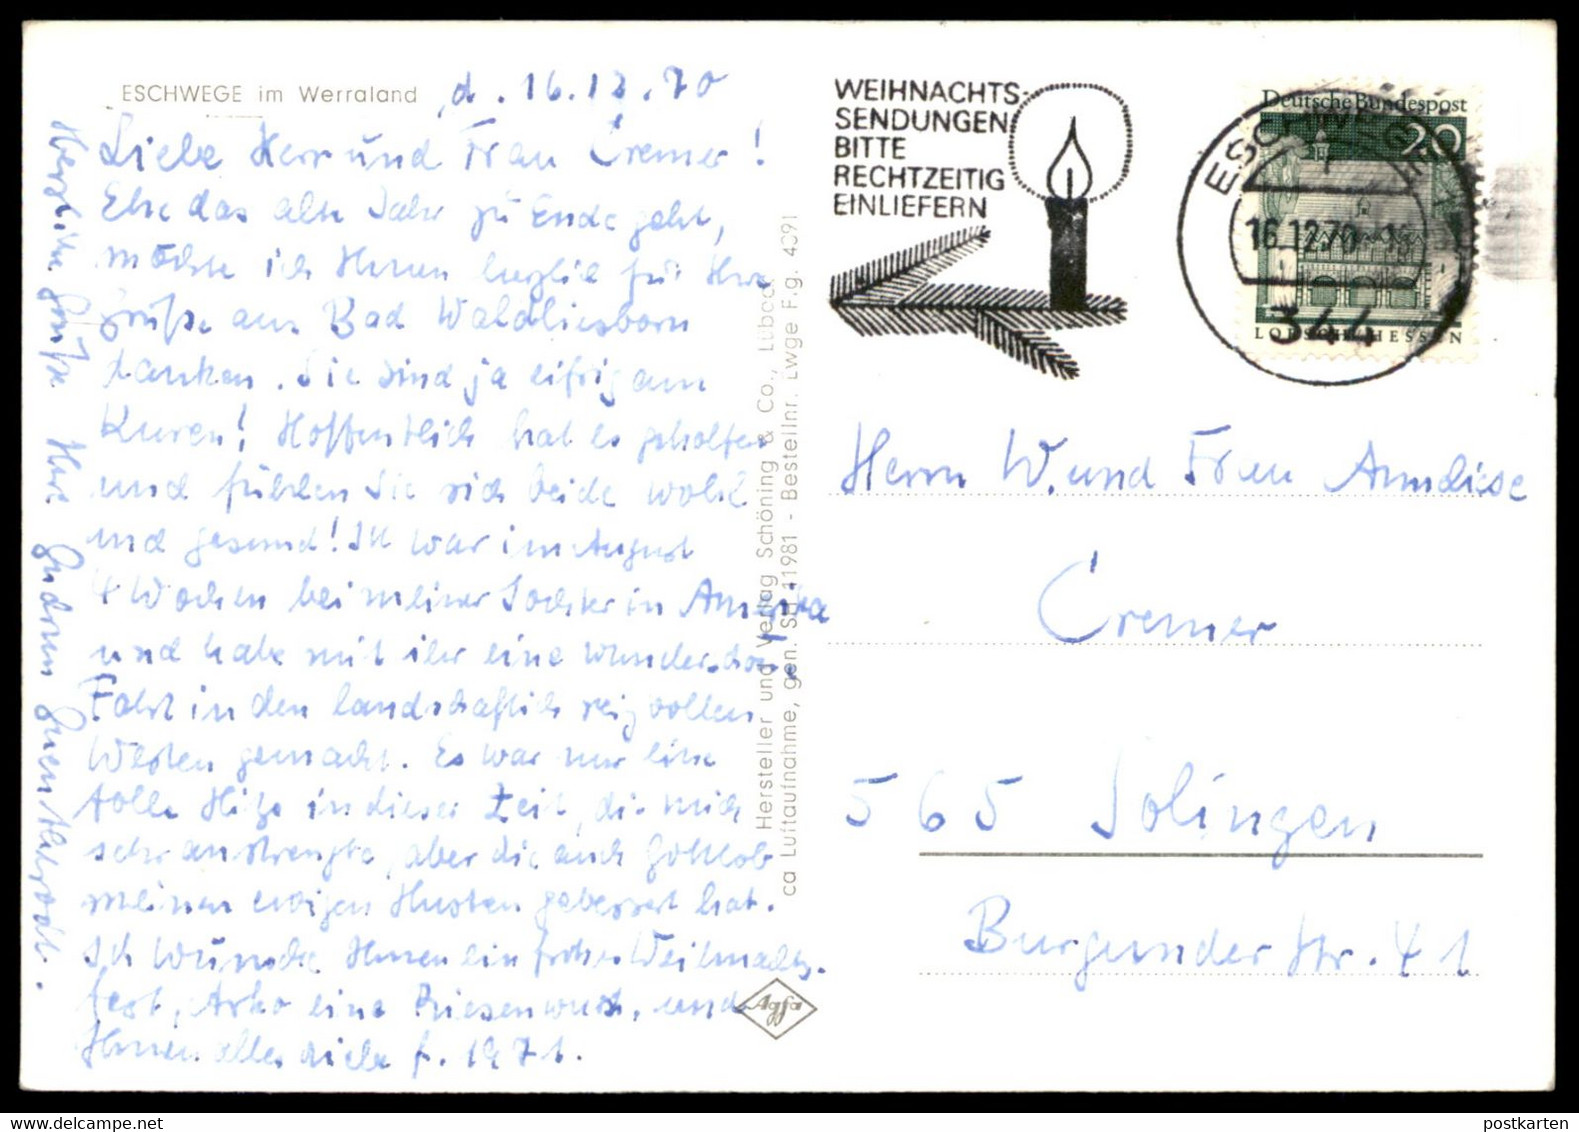 ESCHWEGE im Werraland
d. 16.12.70
Liebe Herr und Frau Cremer!
Ehe das alte Jahr zu Ende geht,
möchte ich Ihnen herzlich für Ihre
Grüße aus Bad Waldliesborn
danken. Sie sind ja eifrig am
Kuren! Hoffentlich hat es geholfen
und fühlen Sie sich beide wohl
und gesund! Ich war im August
4 Wochen bei meiner Tochter in Amerika
und habe mit ihr eine
Fahrt in den landschaftlich reizvollen
Westen gemacht. Es war nur eine
tolle Hitze in dieser Zeit, die mich
sehr anstrengte, aber die auch Gottlob
meinen ewigen Husten gebessert hat.
Ich wünsche Ihnen ein frohes Weihnachts-
fest, Arko eine Riesenwurst, und
Ihnen alles Liebe f. 1971.
Herzliche Grüße Ihre Gudrun
WEIHNACHTS-
SENDUNGEN
BITTE
RECHTZEITIG
EINLIEFERN
Deutsche Bundespost
20
LORSCH/HESSEN
ESCHWEGE
16.12.70
344
Hersteller und Verlag Schöning & Co., Lübeck
ca Luftaufnahme, gen. SH 11981 - Bestellnr. Lwge F.g. 4091
Herrn W. und Frau Anneliese
Cremer
565 Solingen
Burgunder Str. 41
Agfa
postkarten